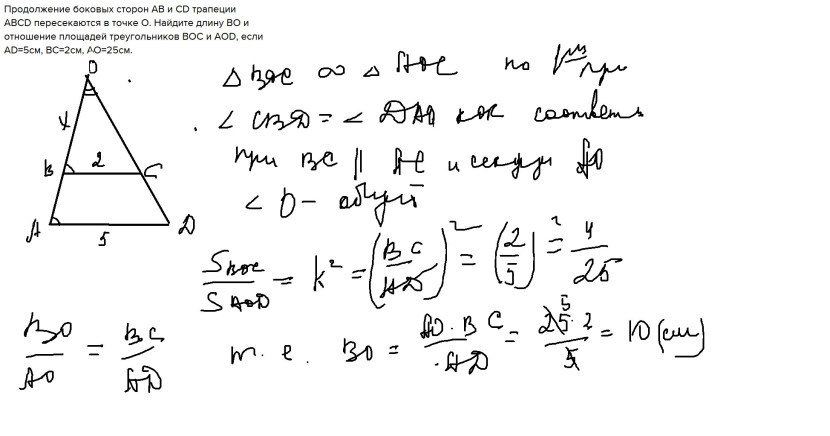 Продолжение боковых сторон AB и CD трапеции
ABCD пересекаются в точке O. Найдите длину BO и
отношение площадей треугольников BOC и AOD, если
AD=5см, BC=2см, AO=25см.
O
x
B 2 C
A 5 D
Δ BOC ∞ Δ по
∠ = ∠ как соответств
при BC || и секущей AO
∠ O - общий
S BOC / S AOD = k² = (BC / AD)² = (2/5)² = 4/25
BO / AO = BC / AD т.е. BO = AO · BC / AD = 25 · 2 / 5 = 10 (см)
5